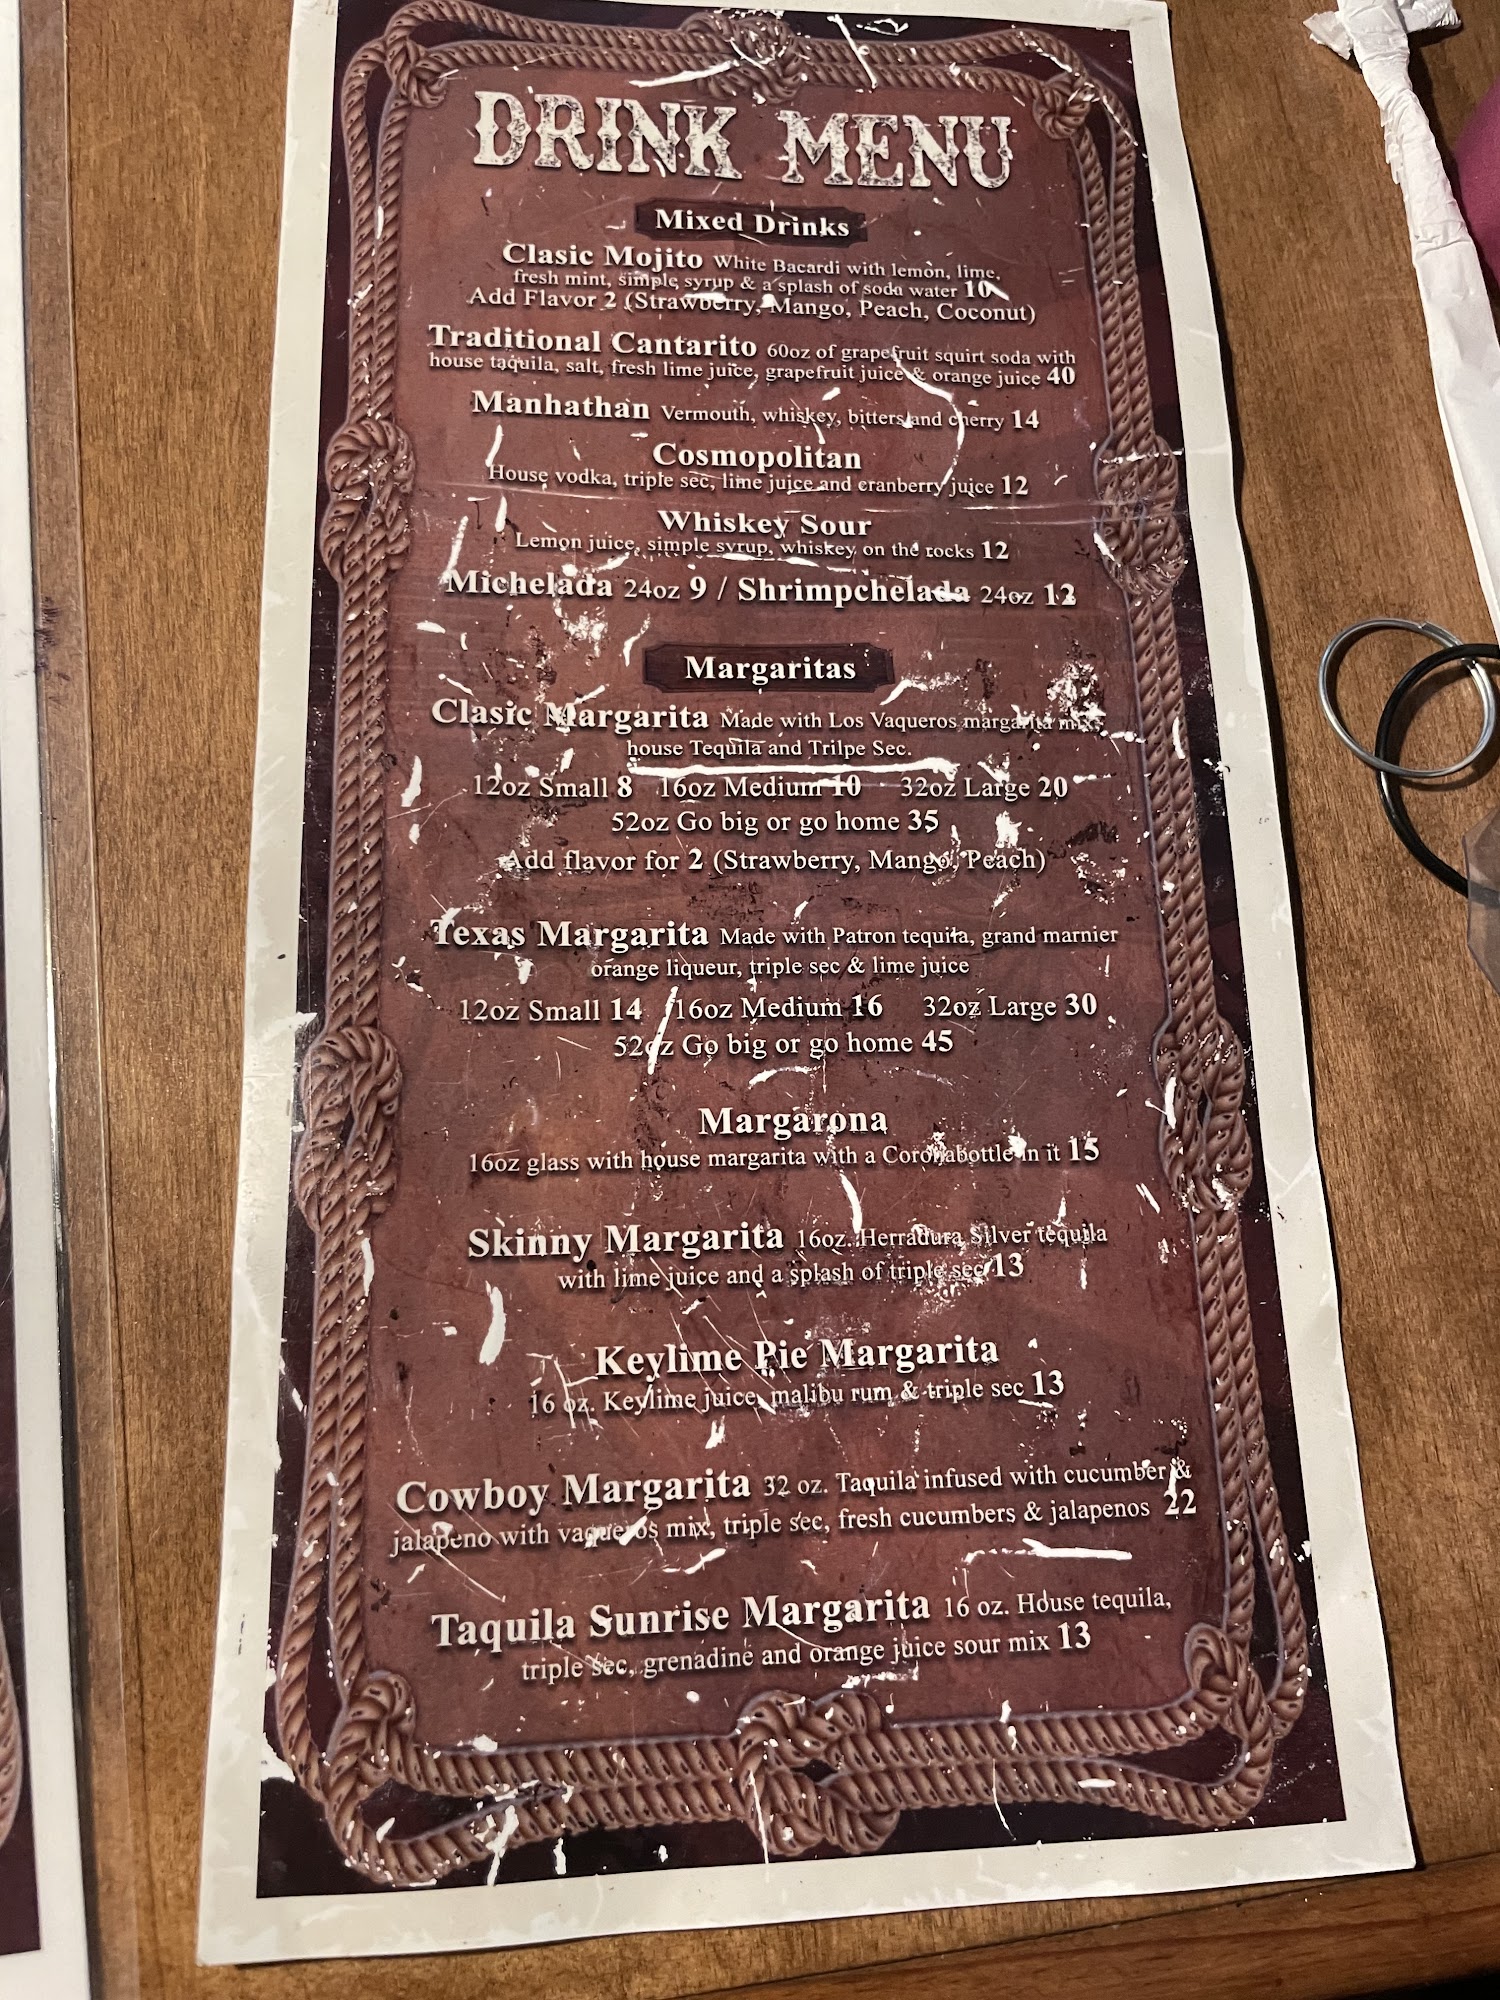 DRINK MENU
Mixed Drinks
Clasic Mojito White Bacardi with lemon, lime,
fresh mint, simple syrup & a splash of soda water 10
Add Flavor 2 (Strawberry, Mango, Peach, Coconut)
Traditional Cantarito 60oz of grapefruit squirt soda with
house taquila, salt, fresh lime juice, grapefruit juice & orange juice 40
Manhathan Vermouth, whiskey, bitters and cherry 14
Cosmopolitan
House vodka, triple sec, lime juice and cranberry juice 12
Whiskey Sour
Lemon juice, simple syrup, whiskey on the rocks 12
Michelada 24oz 9 / Shrimpchelada 24oz 12
Margaritas
Clasic Margarita Made with Los Vaqueros margarita mix,
house Tequila and Trilpe Sec.
12oz Small 8 16oz Medium 10 32oz Large 20
52oz Go big or go home 35
Add flavor for 2 (Strawberry, Mango, Peach)
Texas Margarita Made with Patron tequila, grand marnier
orange liqueur, triple sec & lime juice
12oz Small 14 16oz Medium 16 32oz Large 30
52oz Go big or go home 45
Margarona
16oz glass with house margarita with a Coronabottle in it 15
Skinny Margarita 16oz. Herradura Silver tequila
with lime juice and a splash of triple sec 13
Keylime Pie Margarita
16 oz. Keylime juice, malibu rum & triple sec 13
Cowboy Margarita 32 oz. Taquila infused with cucumber &
jalapeno with vaqueros mix, triple sec, fresh cucumbers & jalapenos 22
Taquila Sunrise Margarita 16 oz. House tequila,
triple sec, grenadine and orange juice sour mix 13